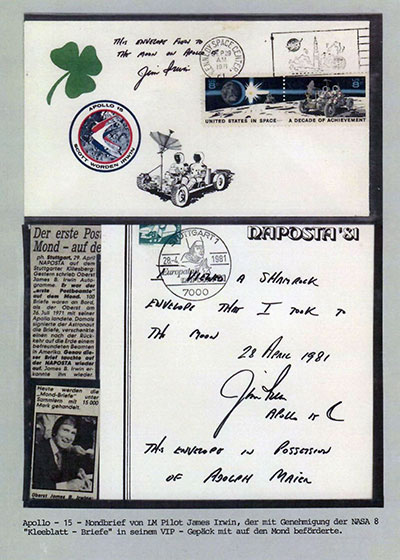 THIS ENVELOPE FLOWN TO
THE MOON ON APOLLO 15
Jim Irwin
KENNEDY SPACE CENTER
A.M.
1971
8c
8c
UNITED STATES IN SPACE... A DECADE OF ACHIEVEMENT
APOLLO 15
SCOTT WORDEN IRWIN
Der erste Post
Mond – auf de
ph. Stuttgart, 29. April
NAPOSTA auf dem
Stuttgarter Killesberg:
Gestern schrieb Oberst
James B. Irwin Auto-
gramme. Er war der
"erste Postbeamte"
auf dem Mond. 100
Briefe waren an Bord,
als der Oberst am
26. Juli 1971 mit seiner
Apollo landete. Damals
signierte der Astronaut
die Briefe, verschenkte
einen nach der Rück-
kehr auf die Erde einem
befreundeten Beamten
in Amerika. Genau die-
ser Brief tauchte auf
der NAPOSTA wieder
auf. James B. Irwin er-
kannte ihn wieder.
Heute werden die
"Mond-Briefe" unter
Sammlern mit 15 000
Mark gehandelt.
Oberst James B. Irwin
NAPOSTA '81
STUTTGART 1
28.-4. 1981
7000
A SHAMROCK
ENVELOPE THAT I TOOK TO
THE MOON
28 APRIL 1981
Jim Irwin
APOLLO 15
THIS ENVELOPE IN POSSESSION
OF ADOLPH MAIER
Apollo - 15 - Mondbrief von LM Pilot James Irwin, der mit Genehmigung der NASA 8
"Kleeblatt - Briefe" in seinem VIP - Gepäck mit auf den Mond beförderte.